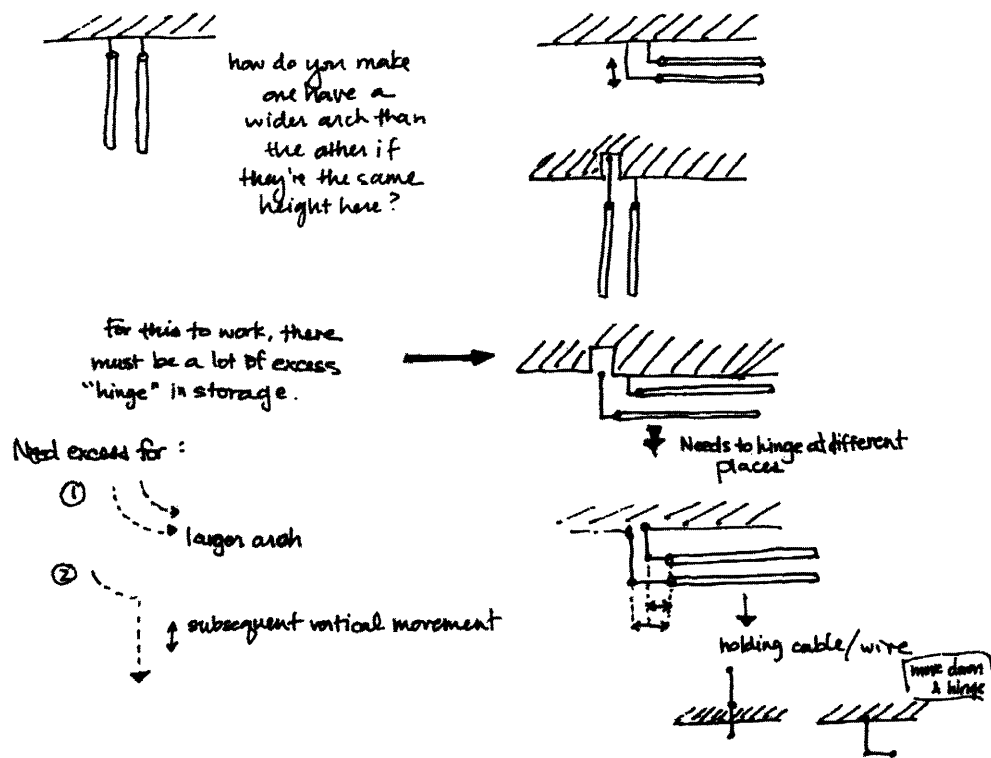 how do you make
one have a
wider arch than
the other if
they're the same
height here?
For this to work, there
must be a lot of excess
"hinge" in storage.
Need excess for :
1
larger arch
2
subsequent vertical movement
Needs to hinge at different
places
holding cable/wire
move down
& hinge